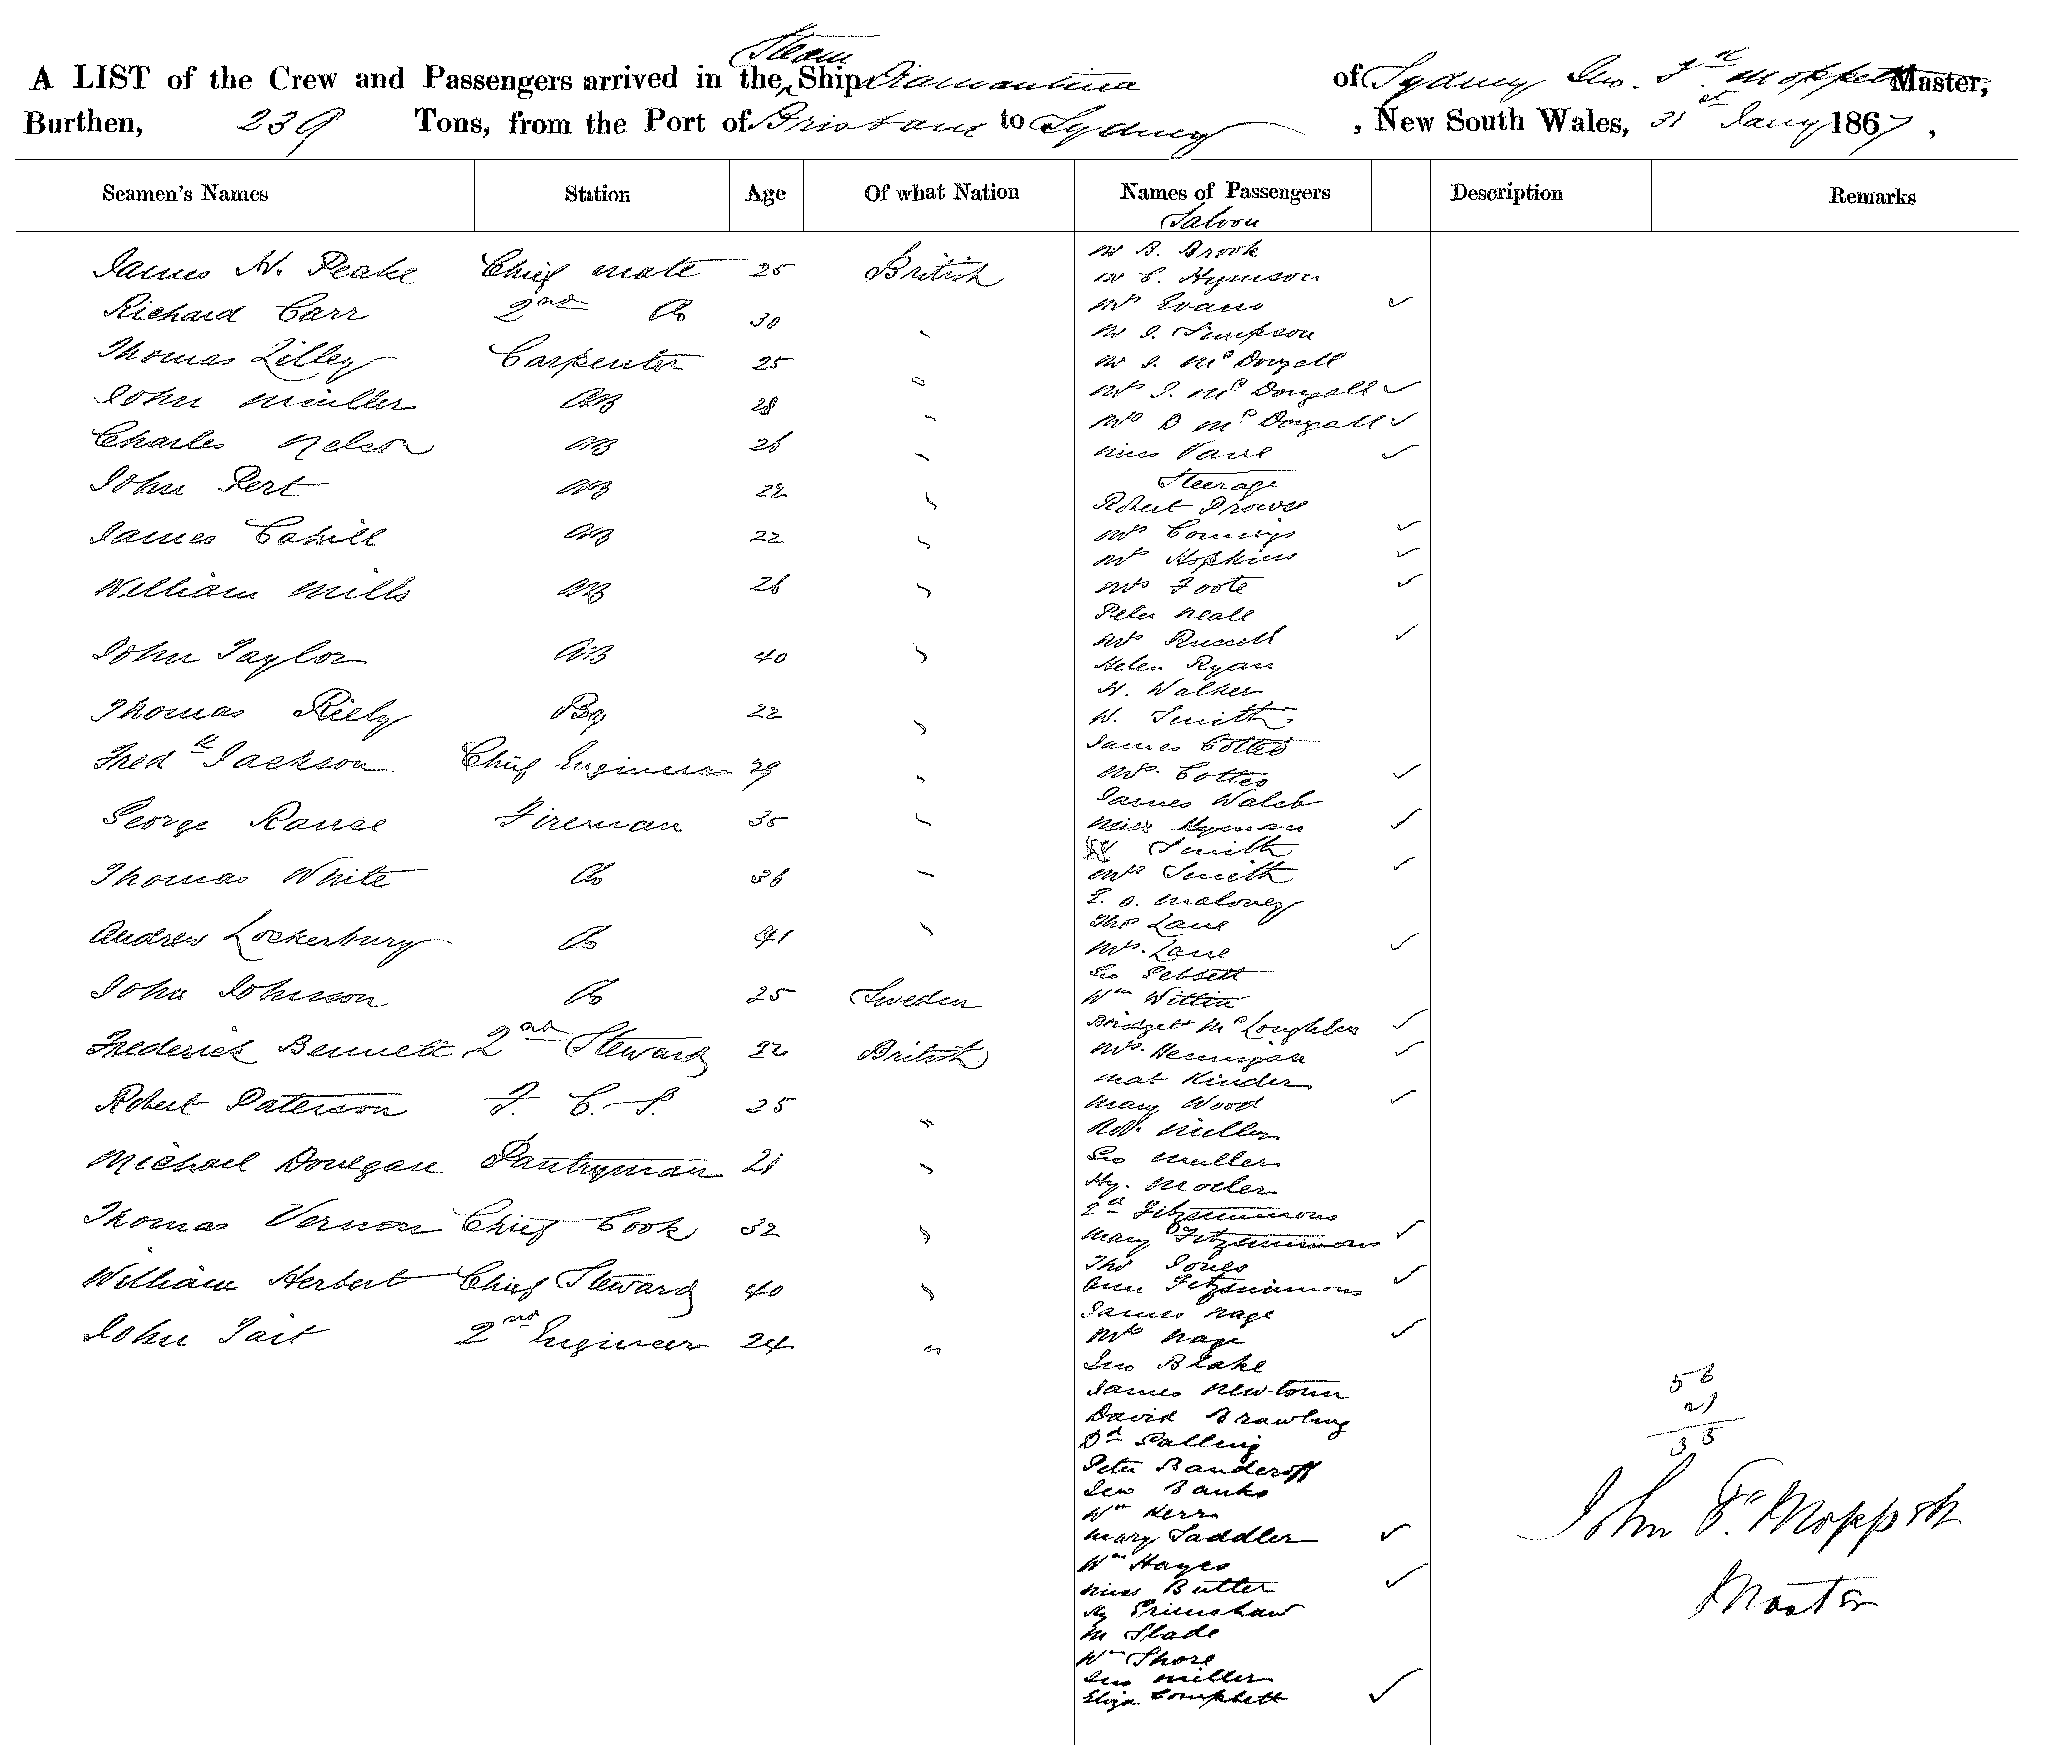 Steam
A LIST of the Crew and Passengers arrived in the Ship Diamantina of Sydney Jno. Fck Moppett Master,
Burthen, 239 Tons, from the Port of Brisbane to Sydney, New South Wales, 31st Jany 1867,
Seamen's Names Station Age Of what Nation Names of Passengers Description Remarks
James W. Peake Chief mate 25 British
Richard Carr 2nd Do 30 "
Thomas Lilley Carpenter 25 "
John Muller AB 28 "
Charles Nelson AB 26 "
John Pert AB 22 "
James Cahill AB 22 "
William Mills AB 26 "
John Taylor AB 40 "
Thomas Riely Boy 22 "
Fredk Jackson Chief Engineer 39 "
George Ranse Fireman 35 "
Thomas White Do 36 "
Andrew Lockerbury Do 41 "
John Johnson Do 25 Sweden
Frederick Bennett 2nd Steward 22 British
Robert Paterson F. C. S. 25 "
Michael Donegan Pantryman 21 "
Thomas Vernon Chief Cook 32 "
William Herbert Chief Steward 40 "
John Tait 2nd Engineer 24 "
Saloon
Mr B. Brook
Mr C. Hymson
Mrs Evans ✓
Mr J. Simpson
Mr J. McDougall
Mrs J. McDougall ✓
Mrs D McDougall ✓
Miss Vane ✓
Steerage
Robert Prowse
Mrs ✓
Mrs Hopkins ✓
Mrs Foote ✓
Peter Neall
Mrs Russell ✓
Helen Ryan
H. Walker
W. Smith
James Cottes
Mrs. Cottes ✓
James Walsh
Miss Hyman ✓
Smith
Mrs Smith ✓
T. O. Maloney
Thos Lane
Mrs. Lane ✓
Geo
Wm
Bridget McLoughlin ✓
Mrs. Hennigan ✓
Mat Kinder
Mary Wood ✓
Miller
Geo Muller
Hy. Moeler
Fitzsimmons
Mary Fitzsimmons ✓
Thos Jones
Ann Fitzsimmons ✓
James Nage
Mrs Nage ✓
Geo Blake
James Newtown
David Brawling
Dd Palling
Peter Banderoff
Geo Banks
Wm Kerr
Mary Saddler ✓
Wm Hayes
Miss Butler ✓
Hy Grimshaw
M Slade
Wm Shore
Geo Miller
Eliza ✓
56
21
35
John Fk Moppett
Master